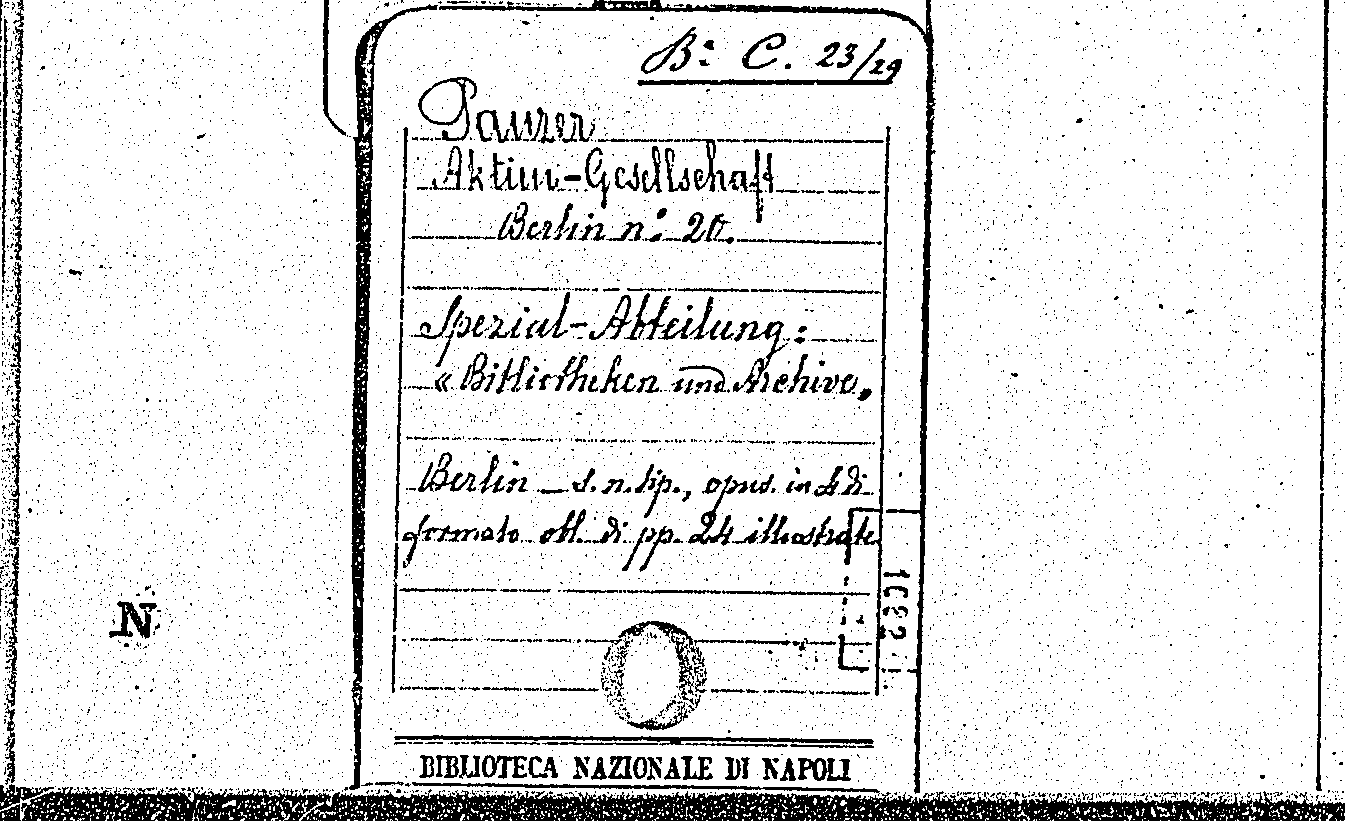 Bª C. 23/29
Panzer
Aktien-Gesellschaft
Berlin n.º 20.
Spezial-Abteilung:
« Bibliotheken und Archive„
Berlin – s. n. tip., opus. in 4 di
formato obl. di pp. 24 illustrate
1082
N
BIBLIOTECA NAZIONALE DI NAPOLI